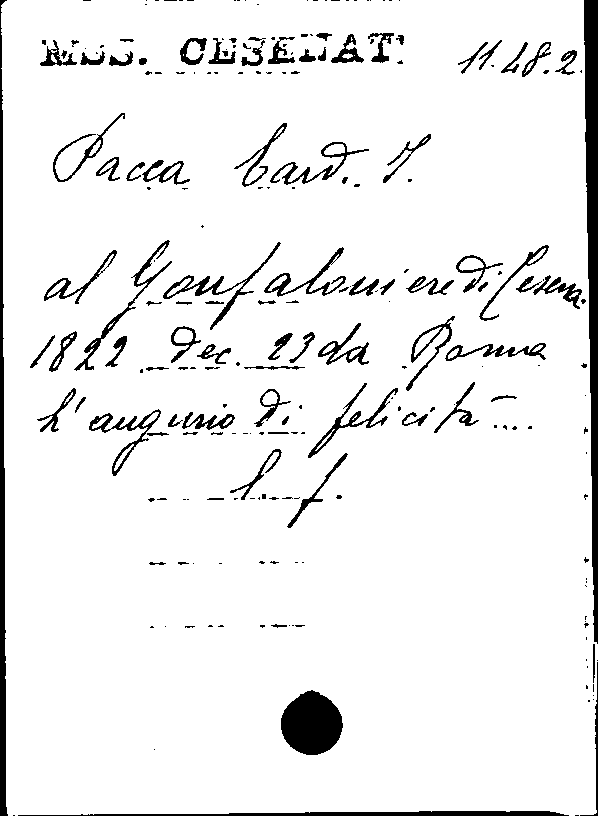 MSS. CESENATI 11.48.2.
Pacca Card. T.
al Gonfaloniere di Cesena.
1822 dec. 23 da Roma
L'augurio di felicità ....
l. f.